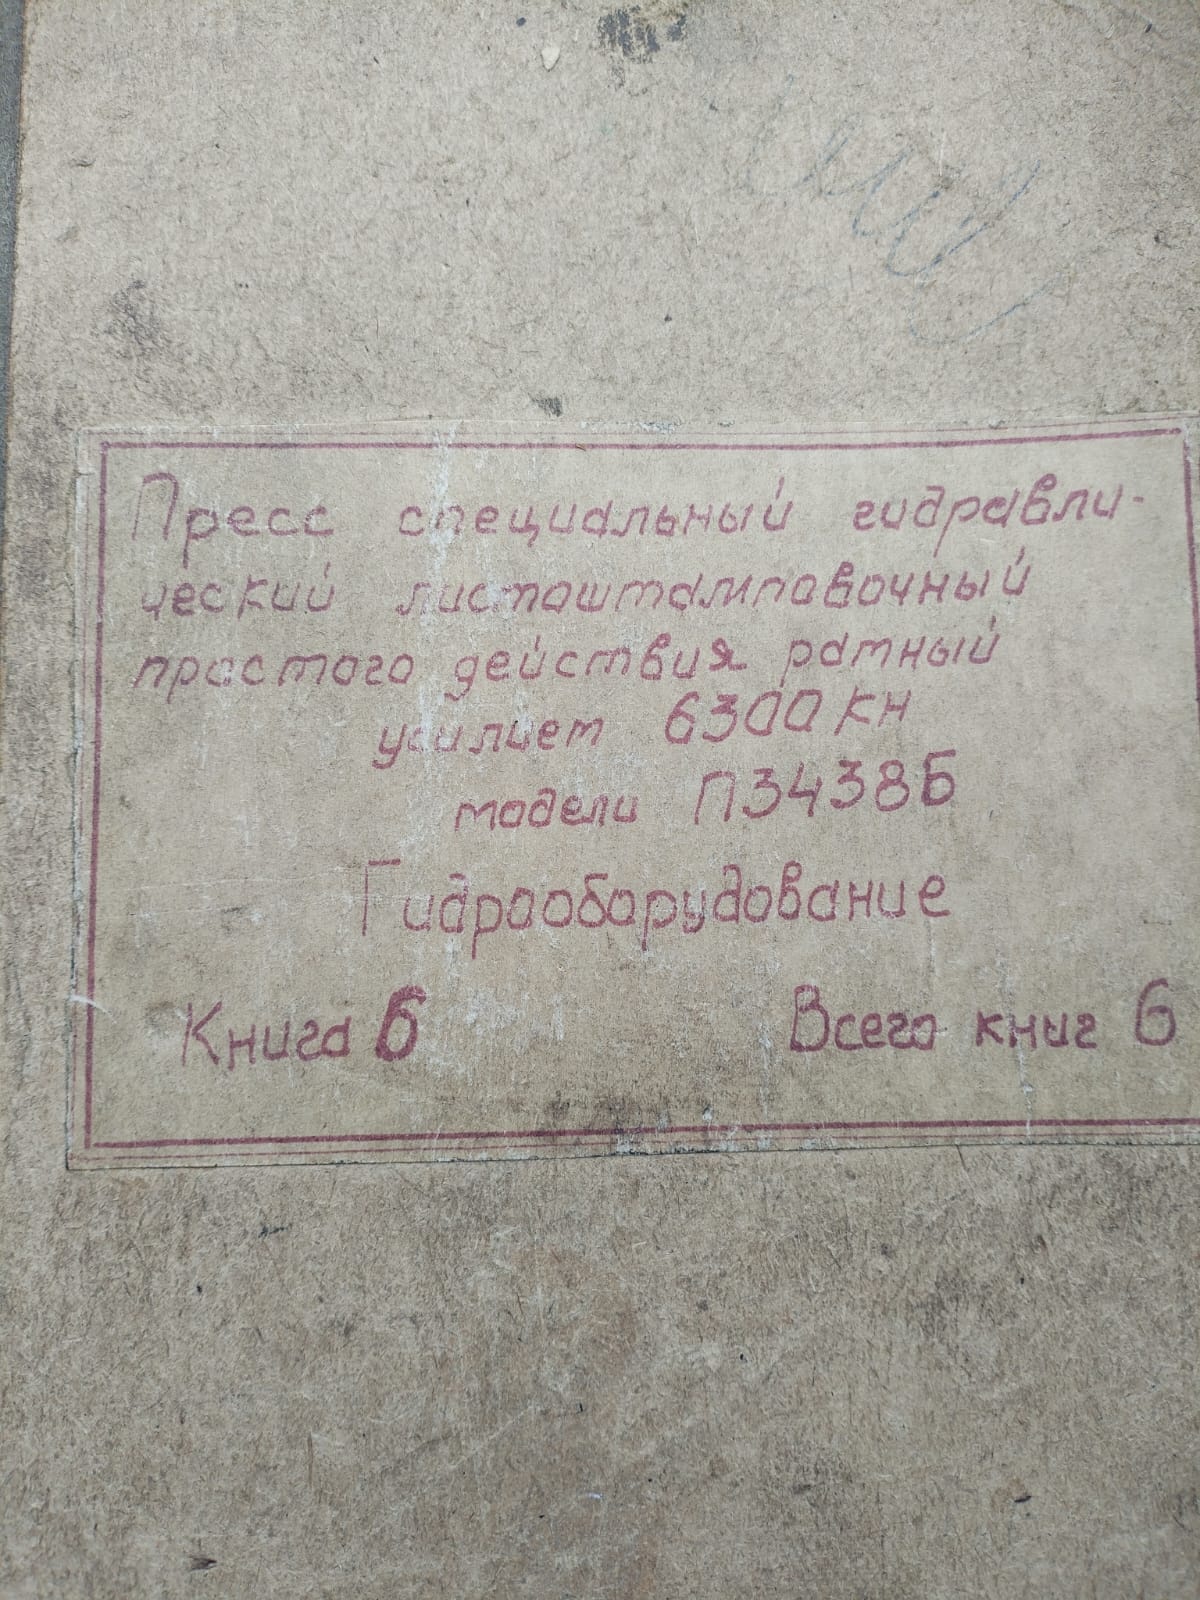 Пресс специальный гидравли-
ческий листоштамповочный
простого действия рамный
усилием 6300 кн
модели П3438Б
Гидрооборудование
Книга 6
Всего книг 6